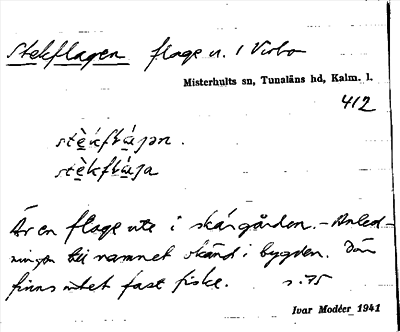 Stekflagen flage n. i Virbo
Misterhults sn, Tunaläns hd, Kalm. l.
412
stèkflá̱gən.
stèkflá̱ga
Är en flage ute i skärgården. – Anled-
ningen till namnet okänd i bygden. Där
finns intet fast fiske. s. 75
Ivar Modéer 1941